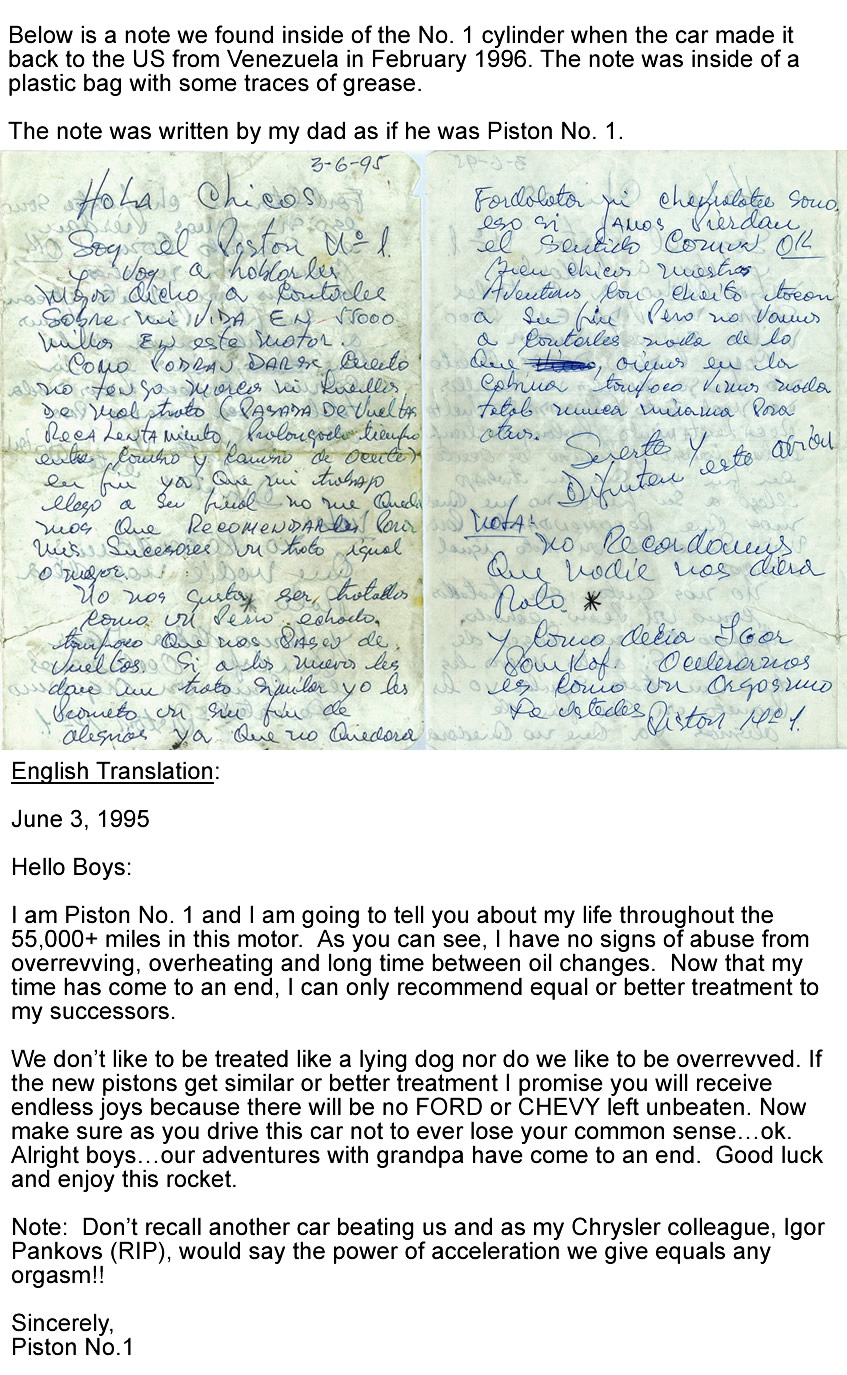 Below is a note we found inside of the No. 1 cylinder when the car made it
back to the US from Venezuela in February 1996. The note was inside of a
plastic bag with some traces of grease.
The note was written by my dad as if he was Piston No. 1.
3-6-95
Hola Chicos
Soy el Piston Nº 1.
y voy a hablarles
mejor dicho a contarles
sobre mi VIDA EN 55000
millas EN este motor.
COMO PODRAN DARSE cuenta
no tengo marcas ni huellas
De mal trato (PASADA DE vueltas
RECALENTAMIENTO, Prolongado tiempo
entre cambio y cambio de aceite)
en fin ya que mi trabajo
llego a su final no me queda
mas que RECOMENDARLES para
mis sucesores un trato igual
o mejor.
No nos gusta ser tratados
como un perro echado.
tampoco que nos PASEN de
vueltas. Si a los nuevos les
dan un trato similar yo les
prometo un sin fin de
alegrias ya que no quedara
Fordolotor ni chefrolotee sono,
eso si JAMAS Pierdan
el sentido COMUN OK
Bien chicos nuestras
Aventuras con cheito tocan
a su fin Pero no vamos
a contarles nada de lo
que oimos en la
cabina tampoco vimos nada
total nunca miramos para
atras.
Suerte y
Difruten este avion
NOTA:
no Recordamos
que nadie nos diera
Palo *
y como decia IGOR
acelerarnos
es como un orgasmo
De Ustedes Piston Nº 1.
English Translation:
June 3, 1995
Hello Boys:
I am Piston No. 1 and I am going to tell you about my life throughout the
55,000+ miles in this motor. As you can see, I have no signs of abuse from
overrevving, overheating and long time between oil changes. Now that my
time has come to an end, I can only recommend equal or better treatment to
my successors.
We don't like to be treated like a lying dog nor do we like to be overrevved. If
the new pistons get similar or better treatment I promise you will receive
endless joys because there will be no FORD or CHEVY left unbeaten. Now
make sure as you drive this car not to ever lose your common sense…ok.
Alright boys…our adventures with grandpa have come to an end. Good luck
and enjoy this rocket.
Note: Don't recall another car beating us and as my Chrysler colleague, Igor
Pankovs (RIP), would say the power of acceleration we give equals any
orgasm!!
Sincerely,
Piston No.1